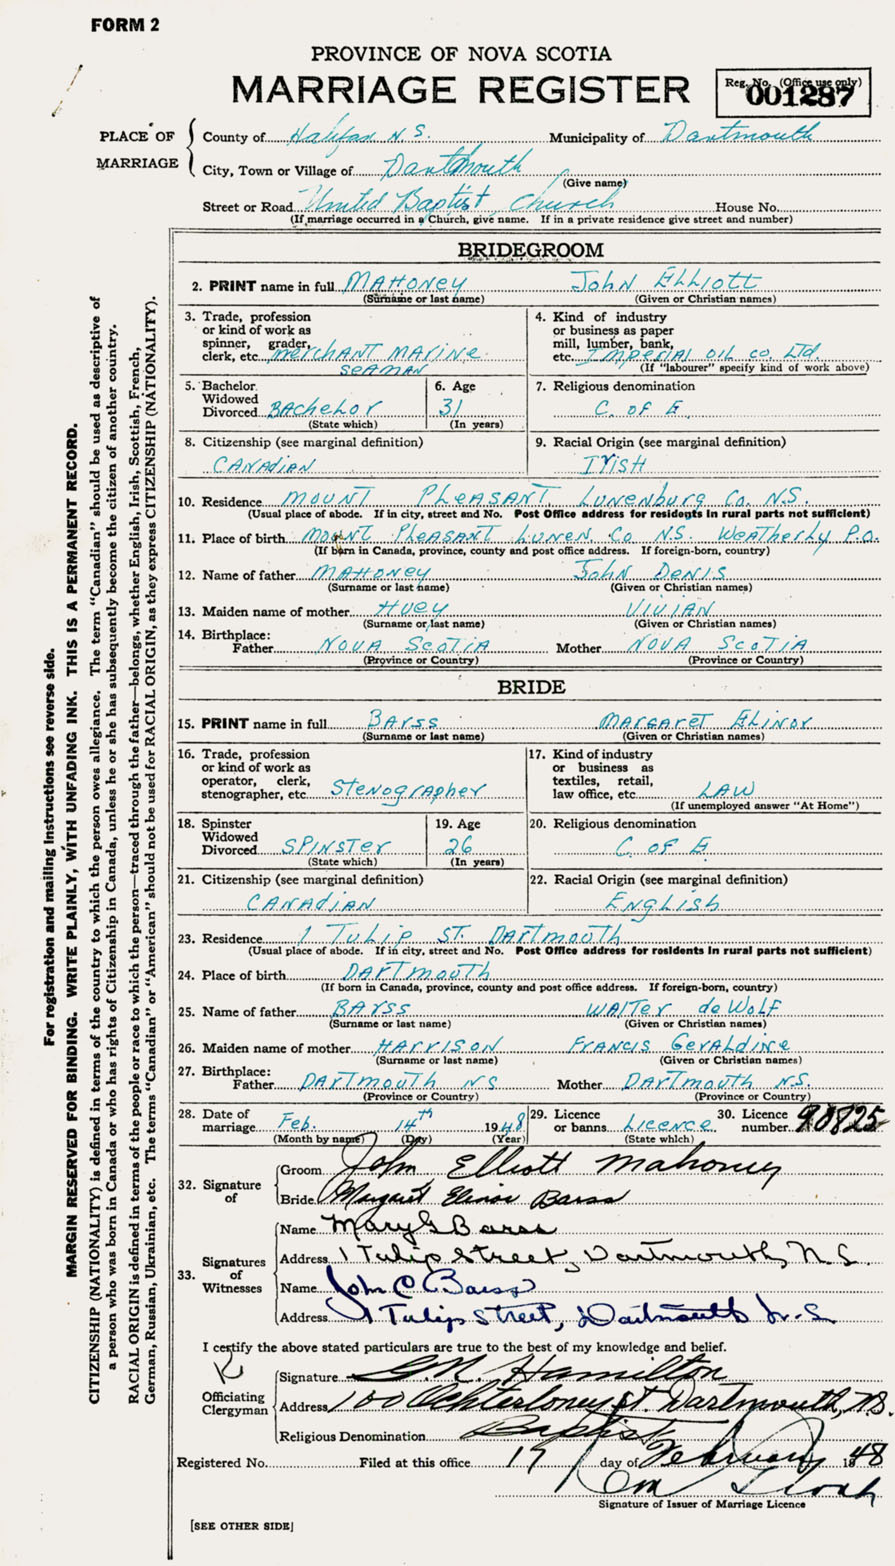 FORM 2
PROVINCE OF NOVA SCOTIA
MARRIAGE REGISTER
Reg. No. (Office use only)
001287
PLACE OF MARRIAGE
County of Halifax N.S. Municipality of Dartmouth
City, Town or Village of Dartmouth
(Give name)
Street or Road United Baptist Church House No.
(If marriage occurred in a Church, give name. If in a private residence give street and number)
BRIDEGROOM
2. PRINT name in full MAHONEY JOHN ELLIOTT
(Surname or last name) (Given or Christian names)
3. Trade, profession or kind of work as spinner, grader, clerk, etc. merchant MARINE SEAMAN
4. Kind of industry or business as paper mill, lumber, bank, etc. IMPERIAL OIL CO. LTD.
(If "labourer" specify kind of work above)
5. Bachelor Widowed Divorced BACHELOR
(State which)
6. Age 31
(In years)
7. Religious denomination
C. OF E.
8. Citizenship (see marginal definition)
CANADIAN
9. Racial Origin (see marginal definition)
IRISH
10. Residence MOUNT PLEASANT, LUNENBURG CO. N.S.
(Usual place of abode. If in city, street and No. Post Office address for residents in rural parts not sufficient)
11. Place of birth MOUNT PLEASANT LUNEN. CO N.S. WEATHERLY P.O.
(If born in Canada, province, county and post office address. If foreign-born, country)
12. Name of father MAHONEY JOHN DENIS
(Surname or last name) (Given or Christian names)
13. Maiden name of mother HUEY VIVIAN
(Surname or last name) (Given or Christian names)
14. Birthplace:
Father NOVA SCOTIA Mother NOVA SCOTIA
(Province or Country) (Province or Country)
BRIDE
15. PRINT name in full BARSS MARGARET ELINOR
(Surname or last name) (Given or Christian names)
16. Trade, profession or kind of work as operator, clerk, stenographer, etc. STENOGRAPHER
17. Kind of industry or business as textiles, retail, law office, etc. LAW
(If unemployed answer "At Home")
18. Spinster Widowed Divorced SPINSTER
(State which)
19. Age 26
(In years)
20. Religious denomination
C. OF E.
21. Citizenship (see marginal definition)
CANADIAN
22. Racial Origin (see marginal definition)
ENGLISH
23. Residence 1 TULIP ST. DARTMOUTH
(Usual place of abode. If in city, street and No. Post Office address for residents in rural parts not sufficient)
24. Place of birth DARTMOUTH
(If born in Canada, province, county and post office address. If foreign-born, country)
25. Name of father BARSS WALTER deWOLF
(Surname or last name) (Given or Christian names)
26. Maiden name of mother HARRISON FRANCIS GERALDINE
(Surname or last name) (Given or Christian names)
27. Birthplace:
Father DARTMOUTH NS Mother DARTMOUTH N.S.
(Province or Country) (Province or Country)
28. Date of marriage Feb. 14th 1948
(Month by name) (Day) (Year)
29. Licence or banns LICENCE
(State which)
30. Licence number 90825
32. Signature of
Groom John Elliott Mahoney
Bride Margaret Elinor Barss
33. Signatures of Witnesses
Name Mary G Barss
Address 1 Tulip Street, Dartmouth, N.S.
Name John C Barss
Address 1 Tulip Street, Dartmouth N.S.
I certify the above stated particulars are true to the best of my knowledge and belief.
Officiating Clergyman
Signature G.M. Hamilton
Address 100 Ochterloney St. Dartmouth, N.S.
Religious Denomination Baptist
Registered No. Filed at this office 17 day of February 1948
Signature of Issuer of Marriage Licence
[SEE OTHER SIDE]
For registration and mailing instructions see reverse side.
MARGIN RESERVED FOR BINDING. WRITE PLAINLY, WITH UNFADING INK. THIS IS A PERMANENT RECORD.
CITIZENSHIP (NATIONALITY) is defined in terms of the country to which the person owes allegiance. The term "Canadian" should be used as descriptive of
a person who was born in Canada or who has rights of Citizenship in Canada, unless he or she has subsequently become the citizen of another country.
RACIAL ORIGIN is defined in terms of the people or race to which the person—traced through the father—belongs, whether English, Irish, Scottish, French,
German, Russian, Ukrainian, etc. The terms "Canadian" or "American" should not be used for RACIAL ORIGIN, as they express CITIZENSHIP (NATIONALITY).